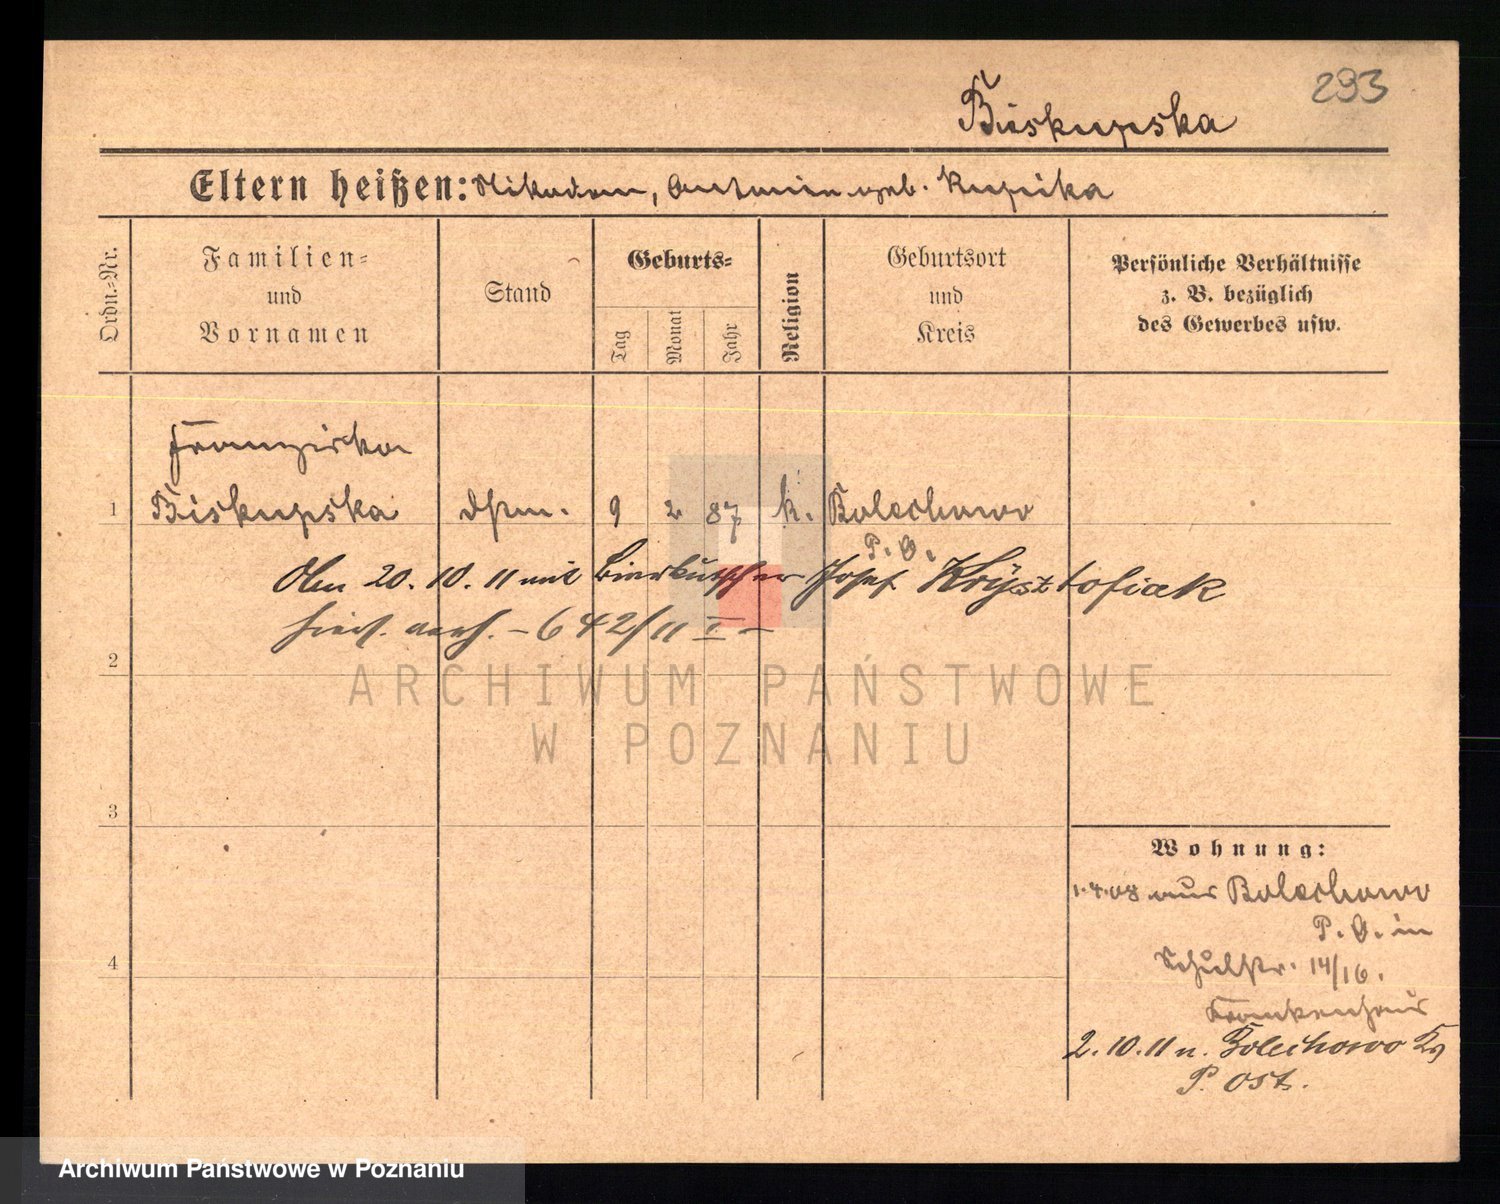 293
Biskupska
Eltern heißen: Nikodem, Antonie geb. Rzepka
Ordn.-Nr.
Familien-
und
Vornamen
Stand
Geburts-
Tag
Monat
Jahr
Religion
Geburtsort
und
Kreis
Persönliche Verhältnisse
z. B. bezüglich
des Gewerbes usw.
Franziska
1 Biskupska 9 2 87 k. Bolechowo
P. O.
Am 20. 10. 11 mit Bierkutscher Josef Krysztofiak
hier verh. – 642/11 I –
2
ARCHIWUM PAŃSTWOWE
W POZNANIU
3
Wohnung:
1.4.08 aus Bolechowo
P. O. in
Schulstr. 14/16.
4
Krankenhaus
2. 10. 11 n. Bolechowo Kr
P. Ost.
Archiwum Państwowe w Poznaniu